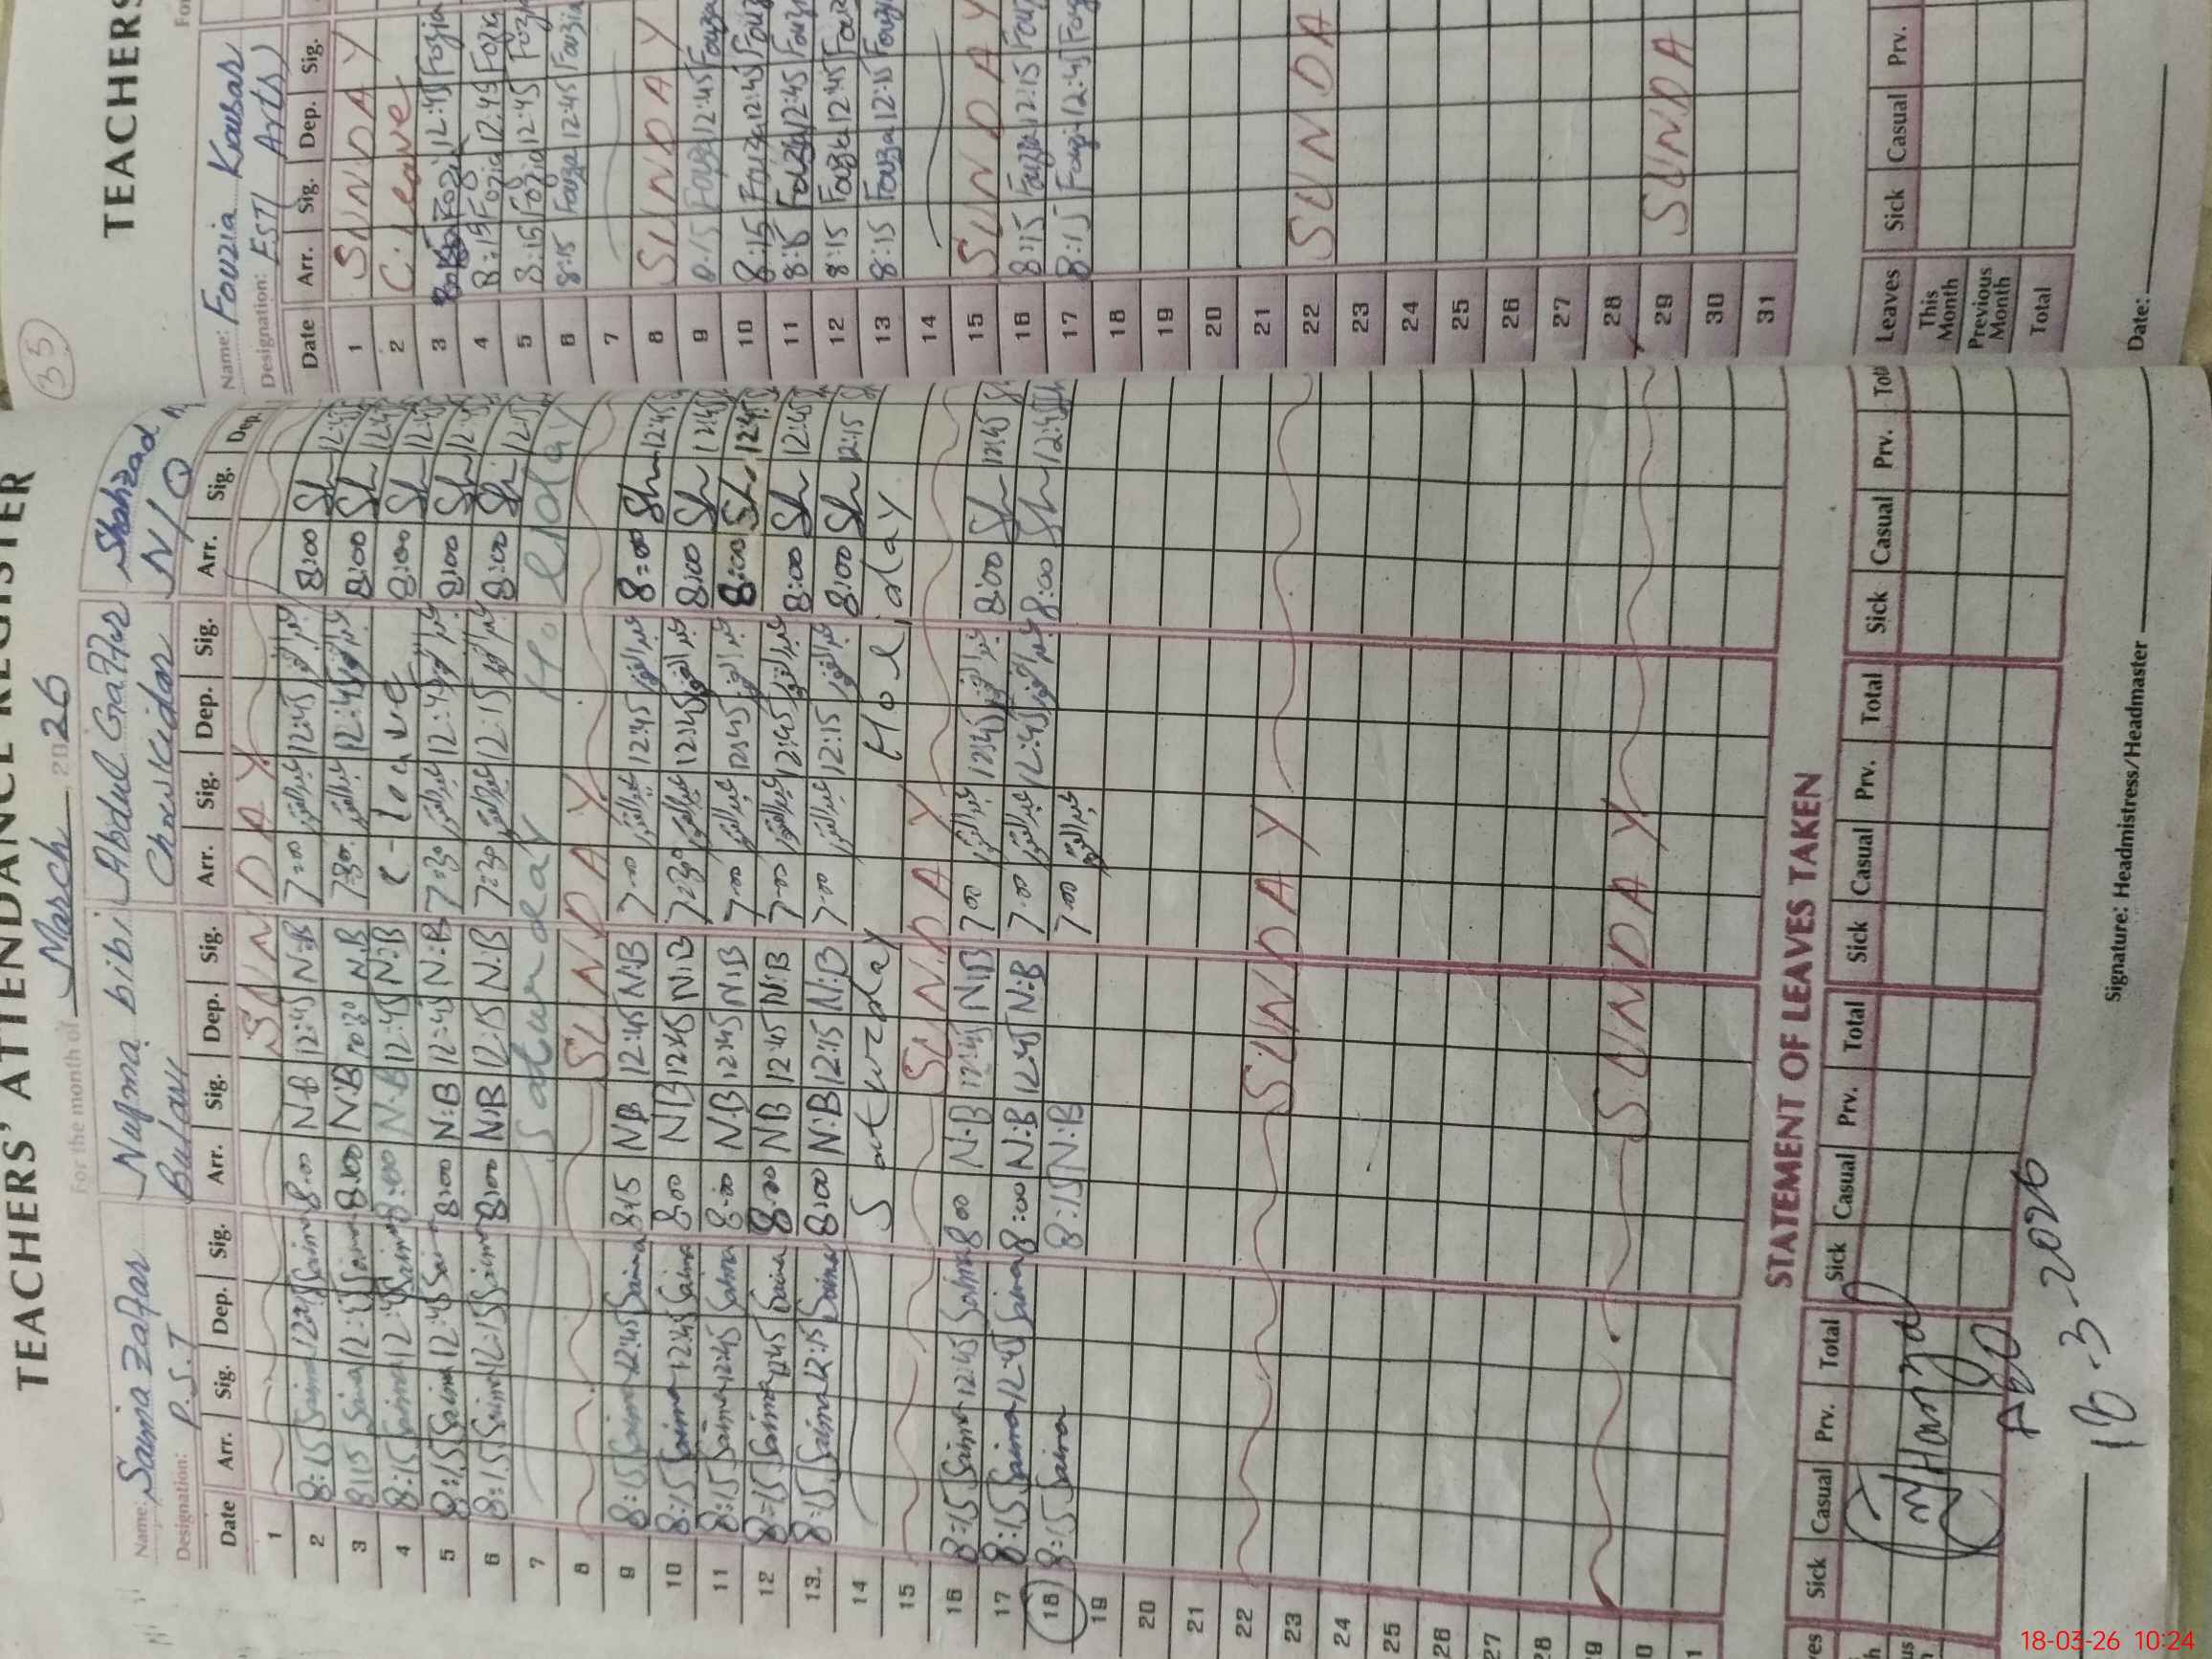 TEACHERS' ATTENDANCE REGISTER
For the month of March 2026
Name: Saima Zafar Najma bibi Abdul Gaffur Shahzad
Designation: P.S.T Chowkidar N/Q
Date Arr. Sig. Dep. Sig. Arr. Sig. Dep. Sig. Arr. Sig. Dep. Sig. Arr. Sig. Dep.
1 SUNDAY
2 8:15 Saima Saima 8:00 N:B 12:45 N:B 7:00 عبدالغفور 12:45 عبدالغفور 8:00 Sh 12:45
3 8:15 Saima 12:45 Saima 8:00 N:B N:B 7:30 عبدالغفور 12:45 عبدالغفور 8:00 Sh 12:45
4 8:15 Saima 12:45 Saima 8:00 N:B 12:45 N:B C-leave 8:00 Sh 12:45
5 8:15 Saima 12:45 Saima 8:00 N:B 12:45 N:B 7:30 عبدالغفور 12:45 عبدالغفور 8:00 Sh 12:45
6 8:15 Saima 12:15 Saima 8:00 N:B 12:15 N:B 7:30 عبدالغفور 12:15 عبدالغفور 8:00 Sh 12:15
7 Saturday Holiday
8 SUNDAY
9 8:15 Saima 12:45 Saima 8:15 N:B 12:45 N:B 7:00 عبدالغفور 12:45 عبدالغفور 8:00 Sh 12:45
10 8:15 Saima 12:45 Saima 8:00 N:B 12:45 N:B 7:30 عبدالغفور 12:45 عبدالغفور 8:00 Sh 12:45
11 8:15 Saima 12:45 Saima 8:00 N:B 12:45 N:B 7:00 عبدالغفور 12:45 عبدالغفور 8:00 Sh 12:45
12 8:15 Saima 12:45 Saima 8:00 N:B 12:45 N:B 7:00 عبدالغفور 12:45 عبدالغفور 8:00 Sh 12:45
13 8:15 Saima 12:15 Saima 8:00 N:B 12:15 N:B 7:00 عبدالغفور 12:15 عبدالغفور 8:00 Sh 12:15
14 Saturday Holiday
15 SUNDAY
16 8:15 Saima 12:45 Saima 8:00 N:B 12:45 N:B 7:00 عبدالغفور 12:45 عبدالغفور 8:00 Sh 12:45
17 8:15 Saima 12:45 Saima 8:00 N:B 12:45 N:B 7:00 عبدالغفور 12:45 عبدالغفور 8:00 Sh 12:45
18 8:15 Saima 8:15 N:B 7:00 عبدالغفور
19
20
21
22 SUNDAY
23
24
25
26
27
28
29 SUNDAY
30
31
STATEMENT OF LEAVES TAKEN
Sick Casual Prv. Total Sick Casual Prv. Total Sick Casual Prv. Total Sick Casual Prv.
AEO
18-3-2026
Signature: Headmistress/Headmaster
33
TEACHERS
Name: Fouzia Kousar
Designation: ESTI Arts)
Date Arr. Sig. Dep. Sig.
1 SUNDAY
2 C. leave
3 Fozia 12:45 Fozia
4 8:15 Fozia 12:45 Fozia
5 8:15 Fozia 12:45 Fozia
6 8:15 Fouzia 12:45 Fouzia
7
8 SUNDAY
9 8:15 Fouzia 12:45 Fouzia
10 8:15 Fouzia 12:45 Fouz
11 8:15 Fouzia 12:45 Fouzi
12 8:15 Fouzia 12:45 Fouz
13 8:15 Fouzia 12:15 Fouzi
14
15 SUNDAY
16 8:15 Fouzia 12:15 Fouz
17 8:15 Fouzi 12:45 Fouz
18
19
20
21
22 SUNDA
23
24
25
26
27
28
29 SUNDA
30
31
Leaves Sick Casual Prv.
This Month
Previous Month
Total
Date:
18-03-26 10:24